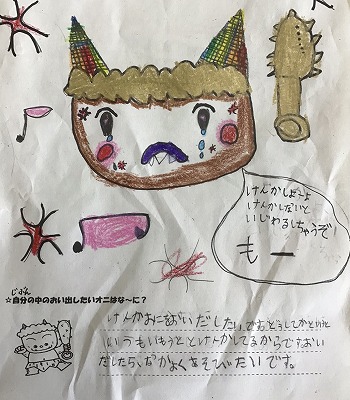 けんかしよーよ
けんかしないと
いじわるしちゃうぞ!
もー
じぶん
☆自分の中のおい出したいオニはな〜に?
けんかおにをおいだしたいですどうしてかというと
いつもいもうととけんかしてるからですおい
だしたらなかよくあそびたいです。